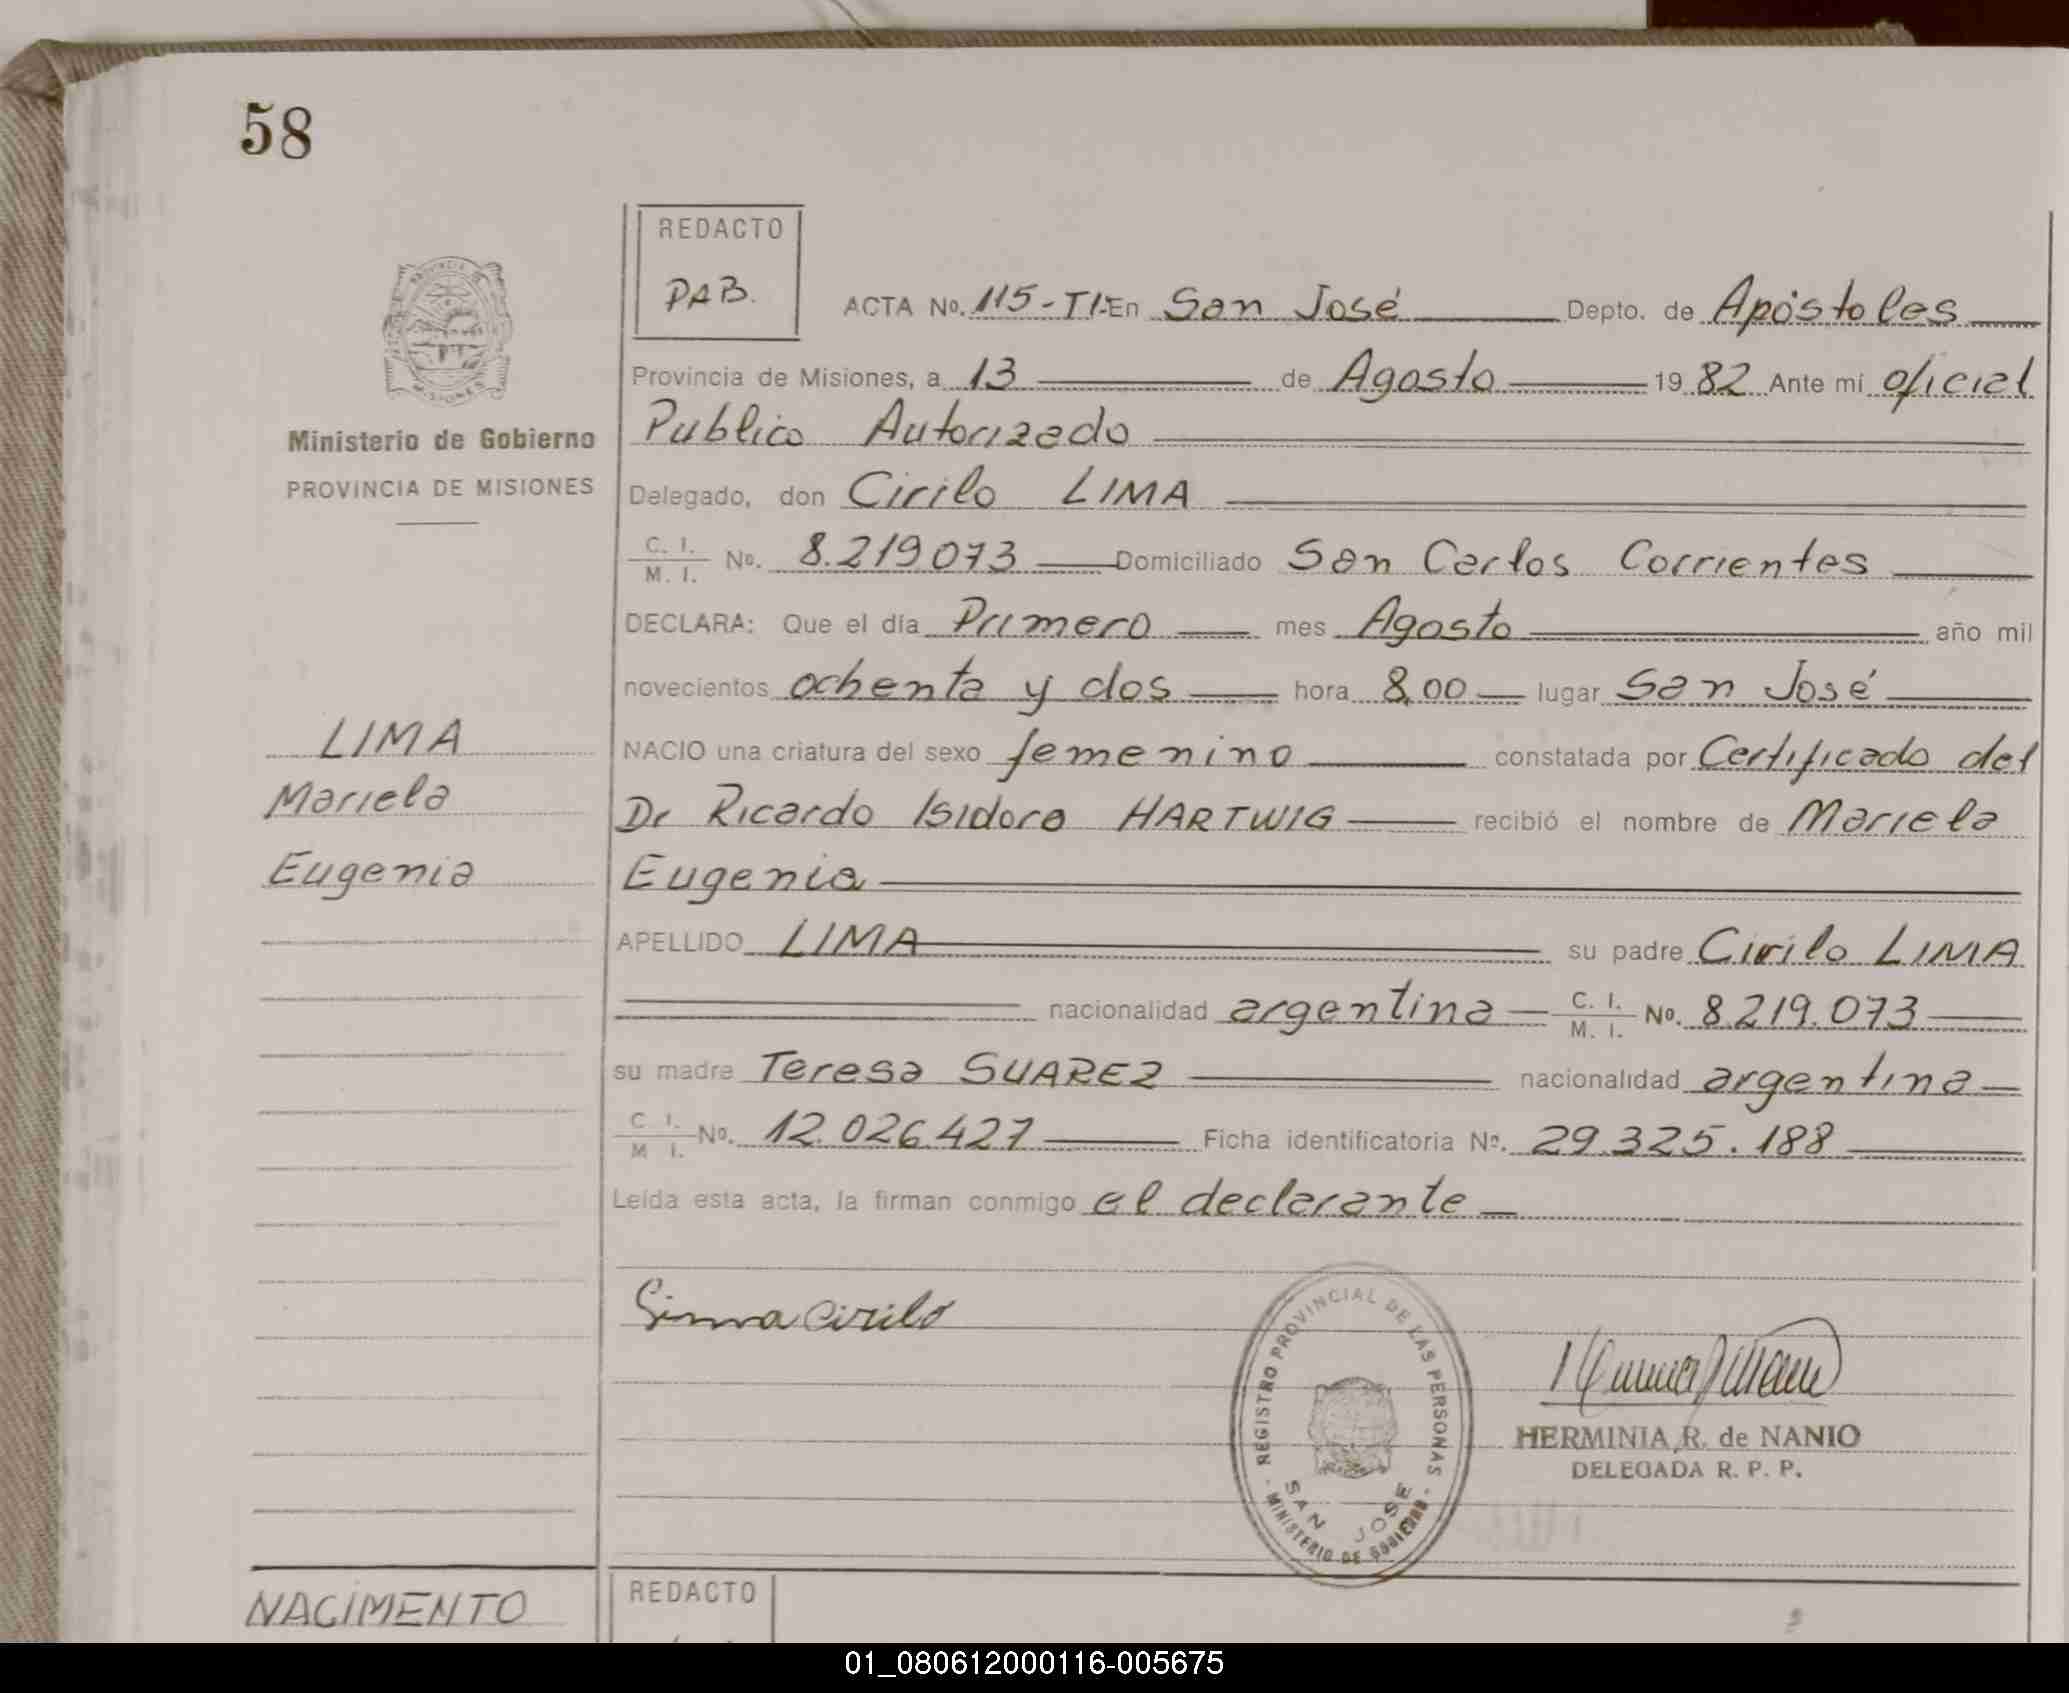 58
REDACTO
PAB.
ACTA No. 115-TI- En San José Depto. de Apóstoles
Provincia de Misiones, a 13 de Agosto 1982 Ante mi oficial
Publico Autorizado
Ministerio de Gobierno
PROVINCIA DE MISIONES
Delegado, don Cirilo LIMA
C. I.
M. I. No. 8.219073 Domiciliado San Carlos Corrientes
DECLARA: Que el día Primero mes Agosto año mil
novecientos ochenta y dos hora 8,00 lugar San José
LIMA
Mariela
Eugenia
NACIO una criatura del sexo femenino constatada por Certificado del
Dr Ricardo Isidoro HARTWIG recibió el nombre de Mariela
Eugenia
APELLIDO LIMA su padre Cirilo LIMA
nacionalidad argentina C. I.
M. I. No. 8.219.073
su madre Teresa SUAREZ nacionalidad argentina
C I.
M I. No. 12.026.427 Ficha identificatoria No. 29.325.188
Leída esta acta, la firman conmigo el declarante
Lima Cirilo
REGISTRO PROVINCIAL DE LAS PERSONAS
SAN JOSE
MINISTERIO DE GOBIERNO
HERMINIA R. de NANIO
DELEGADA R. P. P.
NACIMENTO
REDACTO
01_080612000116-005675